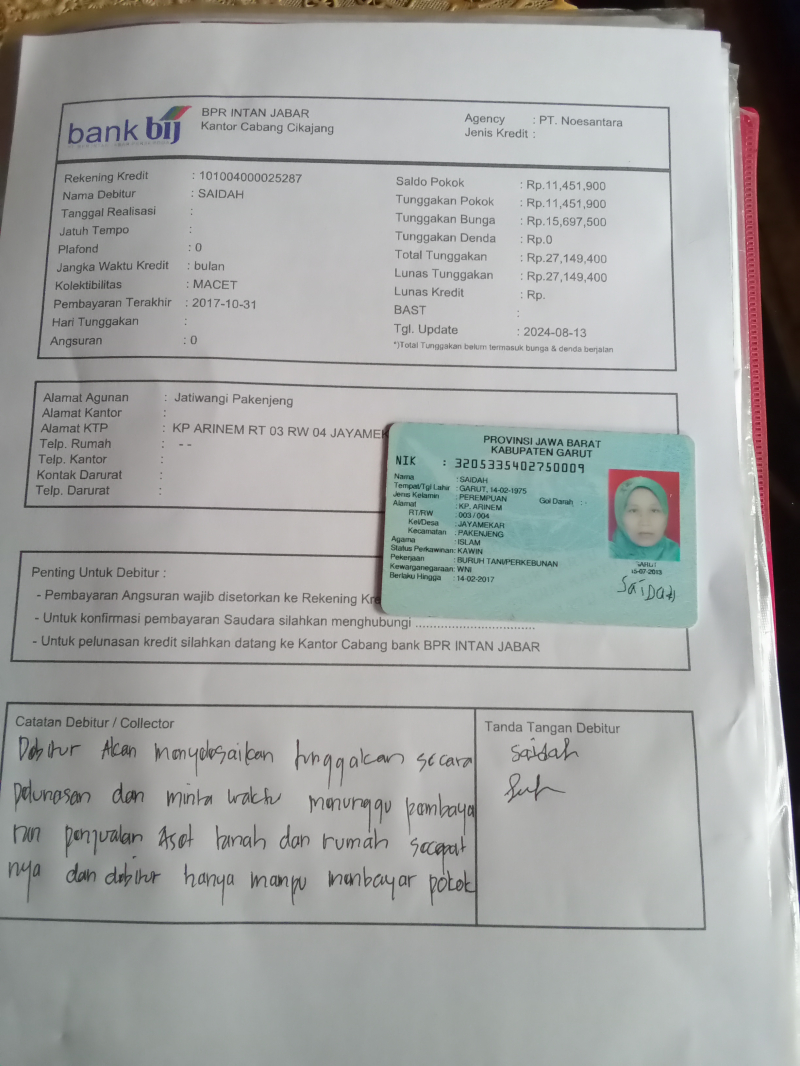 bank bij
BPR INTAN JABAR
Kantor Cabang Cikajang
Agency : PT. Noesantara
Jenis Kredit :
Rekening Kredit : 101004000025287
Nama Debitur : SAIDAH
Tanggal Realisasi :
Jatuh Tempo :
Plafond : 0
Jangka Waktu Kredit : bulan
Kolektibilitas : MACET
Pembayaran Terakhir : 2017-10-31
Hari Tunggakan :
Angsuran : 0
Saldo Pokok : Rp.11,451,900
Tunggakan Pokok : Rp.11,451,900
Tunggakan Bunga : Rp.15,697,500
Tunggakan Denda : Rp.0
Total Tunggakan : Rp.27,149,400
Lunas Tunggakan : Rp.27,149,400
Lunas Kredit : Rp.
BAST :
Tgl. Update : 2024-08-13
*)Total Tunggakan belum termasuk bunga & denda berjalan
Alamat Agunan : Jatiwangi Pakenjeng
Alamat Kantor :
Alamat KTP : KP ARINEM RT 03 RW 04 JAYAMEK
Telp. Rumah : - -
Telp. Kantor :
Kontak Darurat :
Telp. Darurat :
PROVINSI JAWA BARAT
KABUPATEN GARUT
NIK : 3205335402750009
Nama : SAIDAH
Tempat/Tgl Lahir : GARUT, 14-02-1975
Jenis Kelamin : PEREMPUAN Gol Darah : -
Alamat : KP. ARINEM
RT/RW : 003 / 004
Kel/Desa : JAYAMEKAR
Kecamatan : PAKENJENG
Agama : ISLAM
Status Perkawinan: KAWIN
Pekerjaan : BURUH TANI/PERKEBUNAN
Kewarganegaraan: WNI
Berlaku Hingga : 14-02-2017
GARUT
SAIDAH
Penting Untuk Debitur :
- Pembayaran Angsuran wajib disetorkan ke Rekening Kre
- Untuk konfirmasi pembayaran Saudara silahkan menghubungi ................................
- Untuk pelunasan kredit silahkan datang ke Kantor Cabang bank BPR INTAN JABAR
Catatan Debitur / Collector
Debitur Akan menyelesaikan tunggakan secara
pelunasan dan minta waktu menunggu pembaya
ran penjualan Aset tanah dan rumah secepat
nya dan debitur hanya mampu membayar pokok
Tanda Tangan Debitur
Saidah